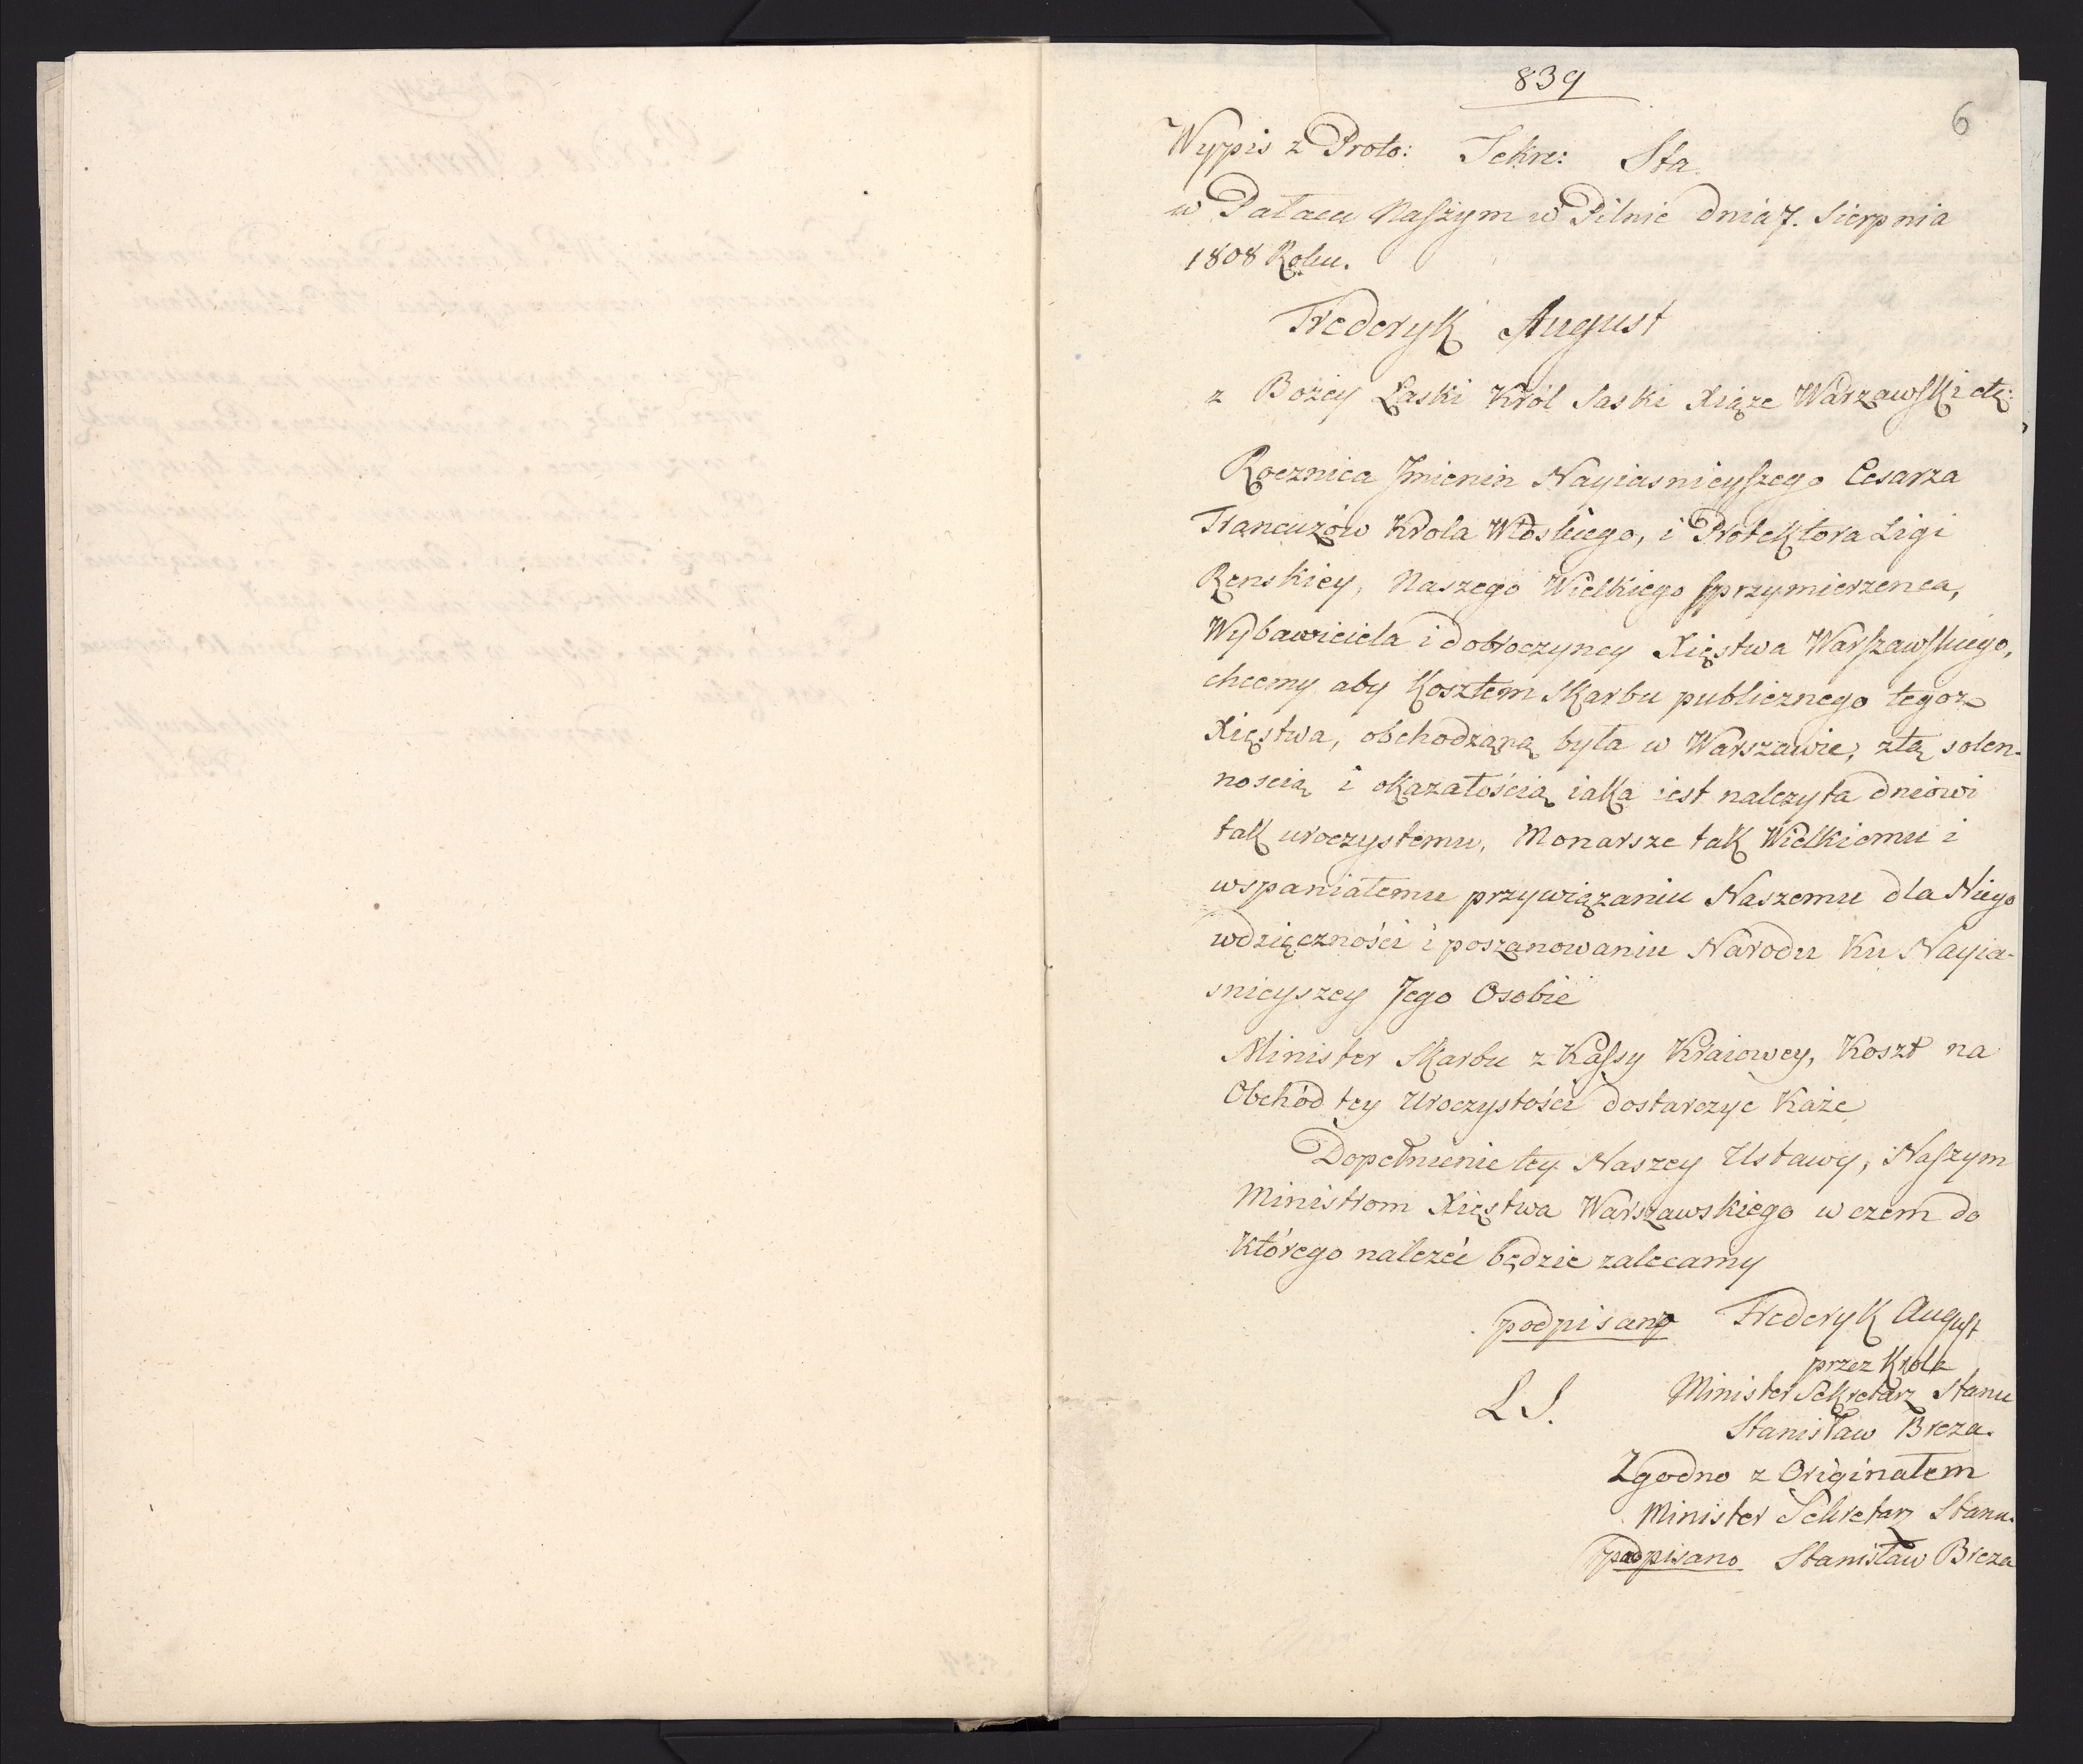 839
6
Wypis z Proto: Sekre: Sta.
w Pałacu Naszym w Pilnic dnia 7. Sierpnia
1808 Roku.
Frederyk August
z Bożey Łaski Król Saski Xiąże Warszawski etc:
Rocznica Jmienin Nayiasnieyszego Cesarza
Francuzów Krola Włoskiego, i Protektora Ligi
Renskiey, Naszego Wielkiego sprzymierzenca,
Wybawiciela i dobroczyncy Xięstwa Warszawskiego,
chcemy aby kosztem Skarbu publicznego tegoz
Xięstwa, obchodzaną była w Warszawie, z tą solen-
noscią i okazałością iaka iest należyta dniowi
tak uroczystemu, Monarsze tak Wielkiemu i
wspaniałemu przywiązaniu Naszemu dla Niego
wdzięczności i poszanowaniu Narodu ku Nayia-
snieyszey Jego Osobie
Minister Skarbu z Kassy Kraiowey, Koszt na
Obchód tey Uroczystości dostarczyc każe
Dopełnienie tey Naszey Ustawy, Naszym
Ministrom Xięstwa Warszawskiego w czem do
którego należeć będzie zalecamy
podpisano Frederyk August
przez Krola
L S. Minister Sekretarz Stanu
Stanisław Breza.
Zgodno z Originałem
Minister Sekretarz Stanu.
podpisano Stanisław Breza